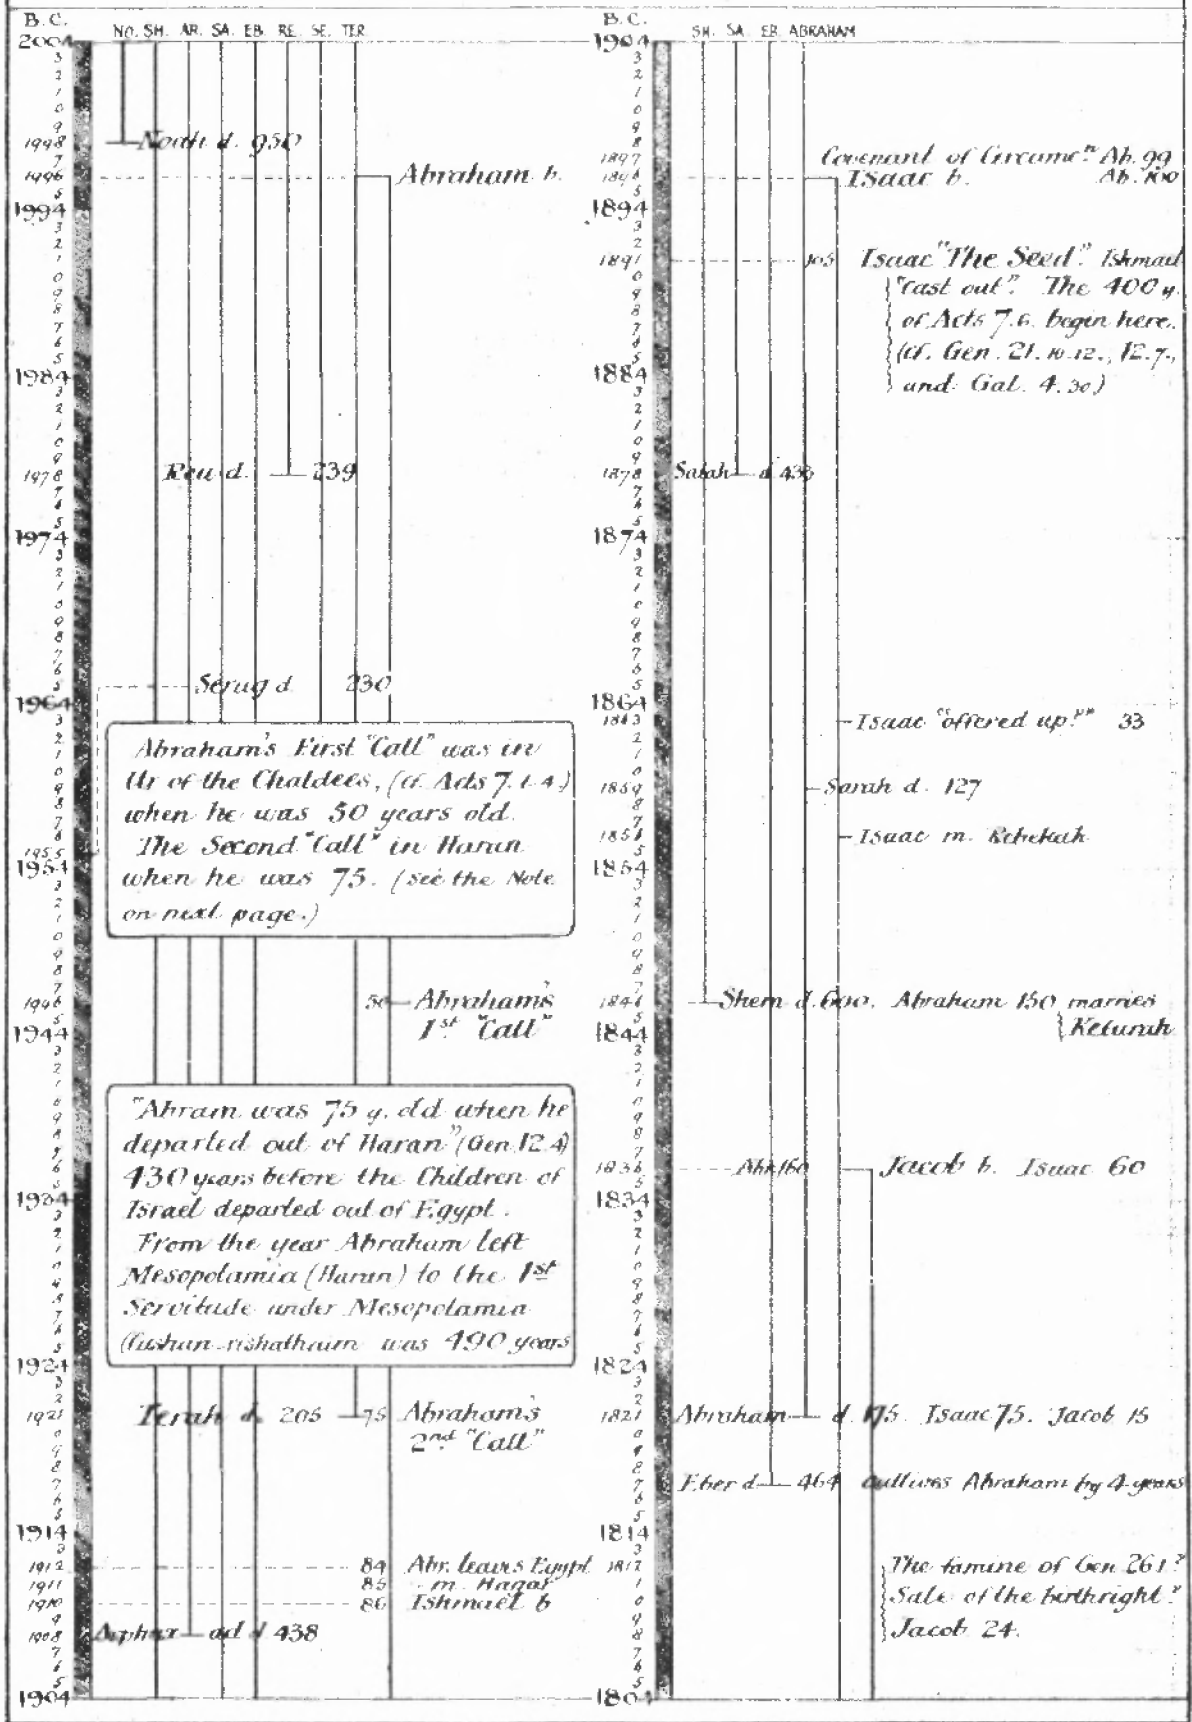 B.C.
NO. SH. AR. SA. EB. RE. SE. TER.
2004
3
2
1
0
9
1998 Noah d. 950
7
1996 Abraham b.
5
1994
3
2
1
0
9
8
7
6
5
1984
3
2
1
0
9
1978 Reu d. 239
7
6
5
1974
3
2
1
0
9
8
7
6
5 Serug d. 230
1964
3
2
1
0
9
8
7
6
1955
Abraham's First "Call" was in
Ur of the Chaldees, (cf. Acts 7.1-4)
when he was 50 years old.
The Second "Call" in Haran
when he was 75. (see the Note
on next page.)
1954
3
2
1
0
9
8
7
1946 50 Abraham's
1st "Call"
5
1944
3
2
1
0
9
8
7
6
5
"Abram was 75 y. old when he
departed out of Haran" (Gen. 12.4)
430 years before the Children of
Israel departed out of Egypt.
From the year Abraham left
Mesopotamia (Haran) to the 1st
Servitude under Mesopotamia
(Cushan-rishathaim was 490 years
1934
3
2
1
0
9
8
7
6
5
1924
3
2
1921 Terah d. 205 75 Abraham's
2nd "Call"
0
9
8
7
6
5
1914
3
1912 84 Abr. leaves Egypt
1911 85 " m. Hagar
1910 86 Ishmael b
9
1908 Arphax ad d 438
7
6
5
1904
B.C.
SH. SA. EB. ABRAHAM
1904
3
2
1
0
9
8
1897 Covenant of Circumcn Ab. 99
1896 Isaac b. Ab. 100
5
1894
3
2
1891 105 Isaac "The Seed". Ishmael
"cast out". The 400 y.
of Acts 7.6. begin here.
(cf. Gen. 21.10.12., 12.7.,
and Gal. 4.30)
0
9
8
7
6
5
1884
3
2
1
0
9
1878 Salah d. 433
7
6
5
1874
3
2
1
0
9
8
7
6
5
1864
1863 Isaac "offered up?" 33
2
1
0
1859 Sarah d. 127
8
7
1856 Isaac m. Rebekah
5
1854
3
2
1
0
9
8
7
1846 Shem d. 600. Abraham 150 marries
Keturah
5
1844
3
2
1
0
9
8
7
1836 Abr. 160 Jacob b. Isaac 60
5
1834
3
2
1
0
9
8
7
6
5
1824
3
2
1821 Abraham d. 175. Isaac 75. Jacob 15
0
9
8
7 Eber d. 464 outlives Abraham by 4 years
6
5
1814
3
1812 The famine of Gen 26.1?
1 Sale of the birthright?
0 Jacob 24.
9
8
7
6
5
1804